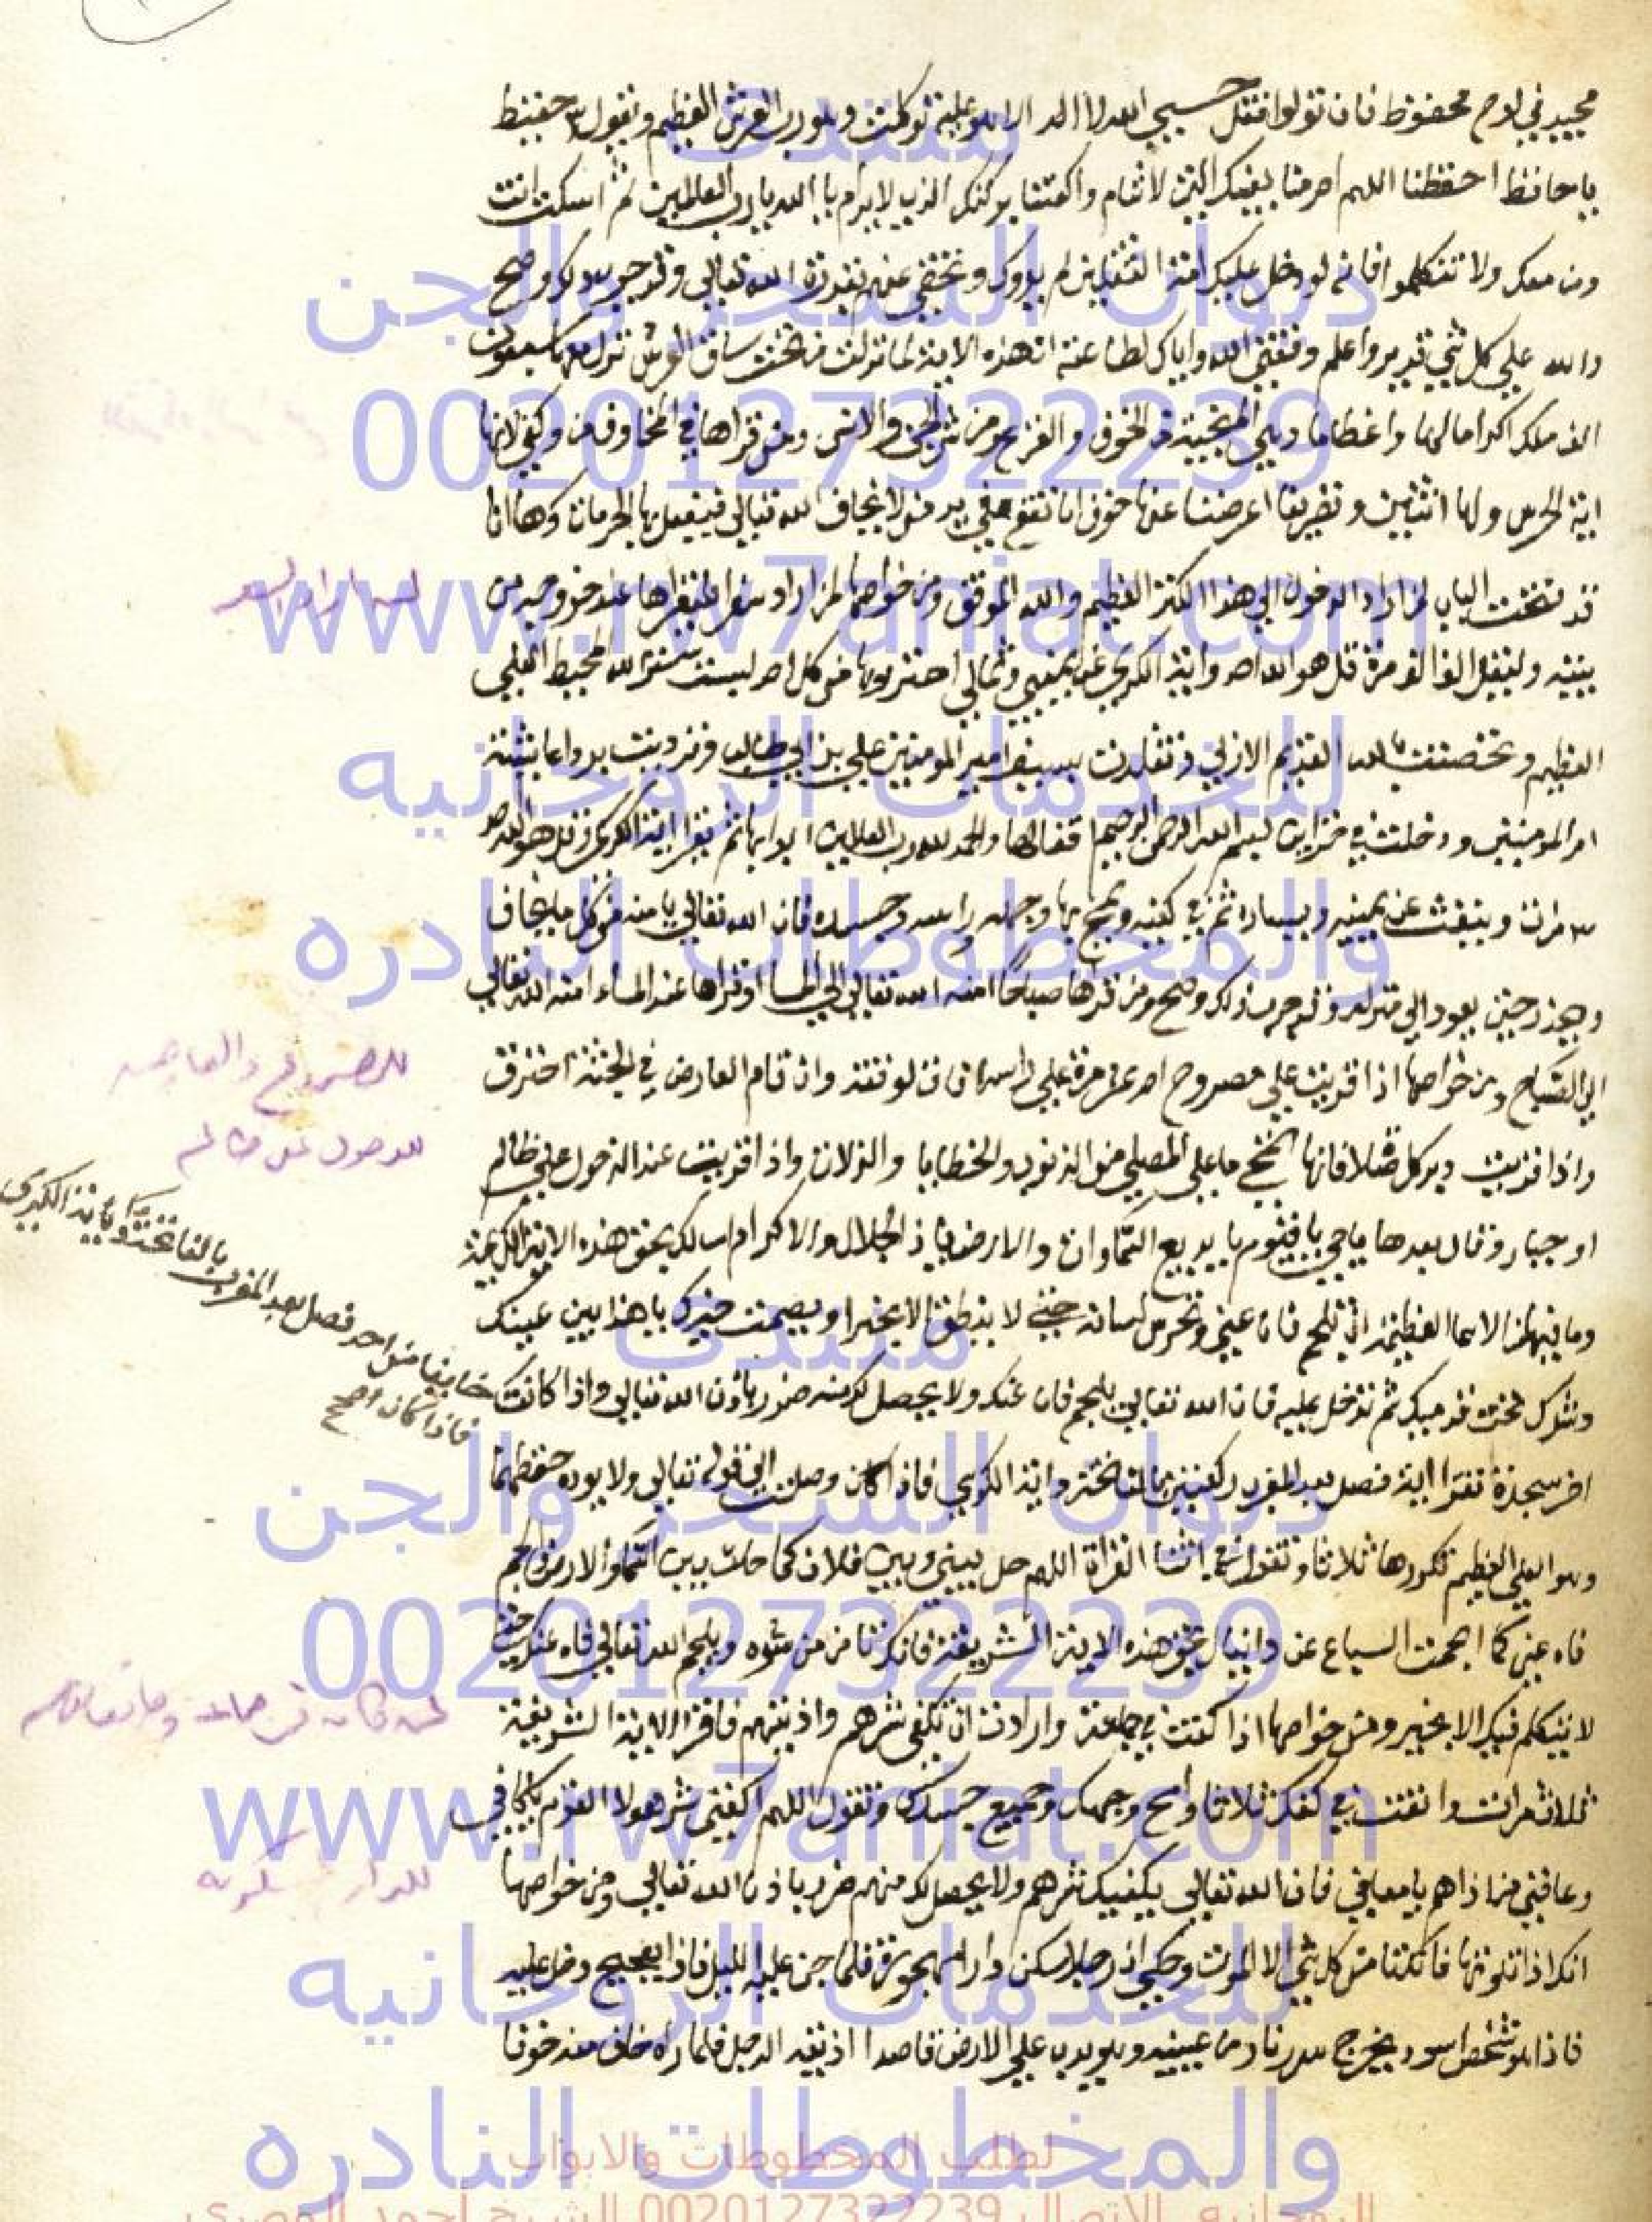 مجيد في لوح محفوظ فان تولوا فقل حسبي الله لا اله الا هو عليه توكلت وهو رب العرش العظيم وتقول ٣ حفيظ
يا حافظ احفظنا اللهم احرسنا بعينك التي لا تنام واكنفنا بركنك الذي لا يرام يا الله يا رب العالمين ثم اسكت انت
ومن معك ولا تتكلموا فانه لو دخل عليك امة الثقلين لم يروك وتختفي عنهم بقدرة الله تعالي وقد جرب ذلك وصح
والله علي كل شي قدير واعلم وفقني الله واياك لطاعته ان هذه الاية لما نزلت من تحت ساق العرش نزل معها سبعون
الف ملك اكراما لها واعظاما وهي المنجية من الخوف والفزع ومن شر الجن والانس ومن قراها في المخاوف امن وكفي لانها
اية الحرس ولها تصريفا اعرضنا عنها خوف ان تقع في يد من لا يخاف الله تعالي فيفعل بها الحرمات وها انا
قد فتحت الباب لمن اراد الدخول الي هذا الكنز العظيم والله الموفق ومن خواصها لمن اراد سفرا فليقراها عند خروجه من
بيته وليقل الف الف مرة قل هو الله احد واية الكرسي عن يميني وشمالي احترز بها من كل احد لبست ستر الله المحيط العلي
العظيم وتحصنت بالله القديم الازلي وتقلدت بسيف امير المومنين علي بن ابي طالب وتردیت بردا عايشة
ام المومنين ودخلت في خزاين بسم الله الرحمن الرحيم اقفالها والحمد لله رب العالمين ابوابها ثم يقرا اية الكرسي وقل هو الله احد
٣ مرات وينفث عن يمينه ويساره ثم في كفيه ويمسح بها وجهه وراسه وجسده فان الله تعالي يامنه من كل ما يخاف
ويحذر حتي يعود الي منزله وقد جرب ذلك وصح ومن قراها صباحا امنه الله تعالي الي المسا او قراها عند المساء امنه الله تعالي
الي الصباح ومن خواصها اذا قريت علي مصروع احد عشر مرة علي راسه فان وان قام العارض في الجثة احترق
واذا قريت دبر كل صلاة فانها تمحي ما علي المصلي من الذنوب والخطايا والزلات واذا قريت عند الدخول علي ظالم
او جبار وقال بعدها يا حي يا قيوم يا بديع السماوات والارض يا ذا الجلال والاكرام اسالك بحق هذه الاية الكريمة
وما فيها من الاسما العظيمة ان تلجم فاه عني وتخرس لسانه حتي لا ينطق الا بخير او يصمت خيرك يا هذا بين عينيك
وشرك تحت قدميك ثم تدخل عليه فان الله تعالي يلجم فاه عنك ولا يحصل لك منه ضرر باذن الله تعالي واذا كانت
خايفا من احد فصل بعد المغرب بالفاتحة واية الكرسي
فاذا كان
فصل بعد المغرب ركعتين بالفاتحة واية الكرسي فاذا كان وصلت الي قوله تعالي ولا يوده حفظهما
وهو العلي العظيم تكررها ثلاثا وتقول في اثنا القراة اللهم حل بيني وبين فلان كما حلت بين السماء والارض والجم
فاه عني كما الجمت السباع عن دانيال بحق هذه الاية الشريفة فانك تامن من شره ويلجم الله تعالي فاه عنك حتي
لا يتكلم فيك الا بخير ومن خواصها اذا كنت في جماعة وارادت ان تكفي شرهم واذيتهم فاقرا الاية الشريفة
ثلاث مرات وانفث في كفك ثلاثا وامسح وجهك وجميع جسدك وتقول اللهم اكفني شر هولا القوم يا كافي
وعافني من اذاهم يا معافي فان الله تعالي يكفيك شرهم ولا يحصل لك منهم ضرر باذن الله تعالي ومن خواصها
انك اذا تلوتها فانك تامن كل شي الا الموت وحكي ان رجلا سكن دارا مهجورة فلما جن عليه الليل فاذا دخل عليه
فاذا هو شخص اسود يخرج شرر نار من عينيه وهو يدب علي الارض قاصدا اذيته الرجل فلما راه خاف منه خوفا
منتدى
ديوان السحر والجن
0020127322239
www.rw7aniat.com
للخدمات الروحانيه
والمخطوطات النادره
منتدى
ديوان السحر والجن
0020127322239
www.rw7aniat.com
للخدمات الروحانيه
والمخطوطات النادره
لطلب المخطوطات والابواب
الروحانيه الاتصال 0020127322239 الشيخ احمد المصري